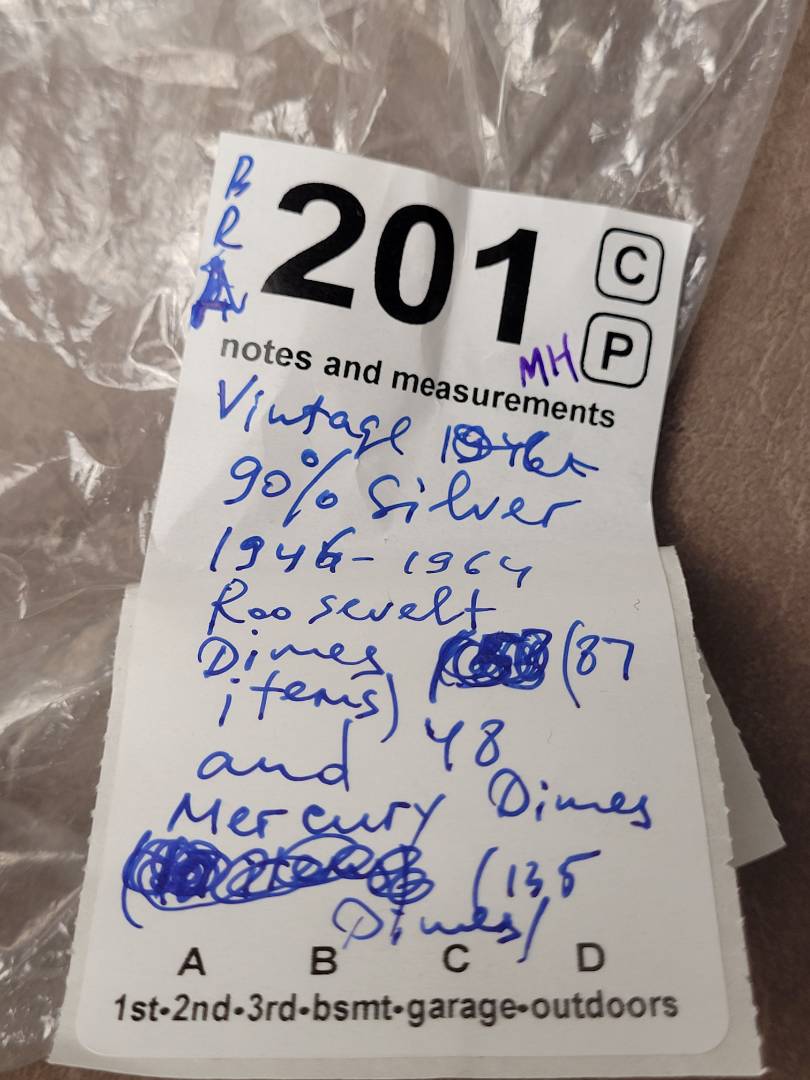 B
R
A
201
C
P
MH
notes and measurements
Vintage
90% Silver
1946-1964
Roosevelt
Dimes (87
items)
and 48
Mercury Dimes
(135
Dimes)
A B C D
1st•2nd•3rd•bsmt•garage•outdoors